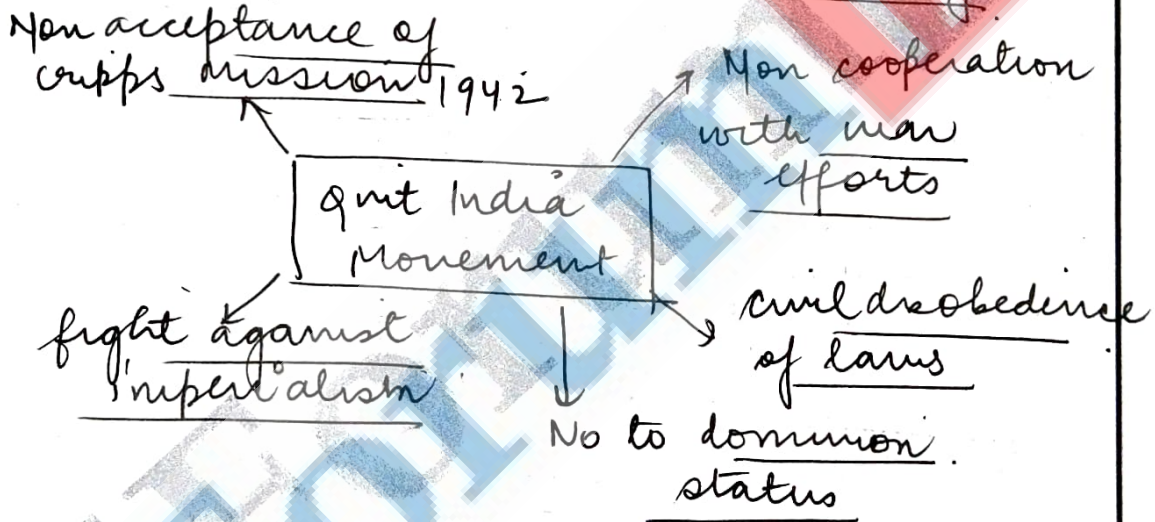 Non acceptance of
cripps mission 1942
Non cooperation
with war
efforts
Quit India
Movement
fight against
imperialism
civil disobedience
of laws
No to dominion.
status